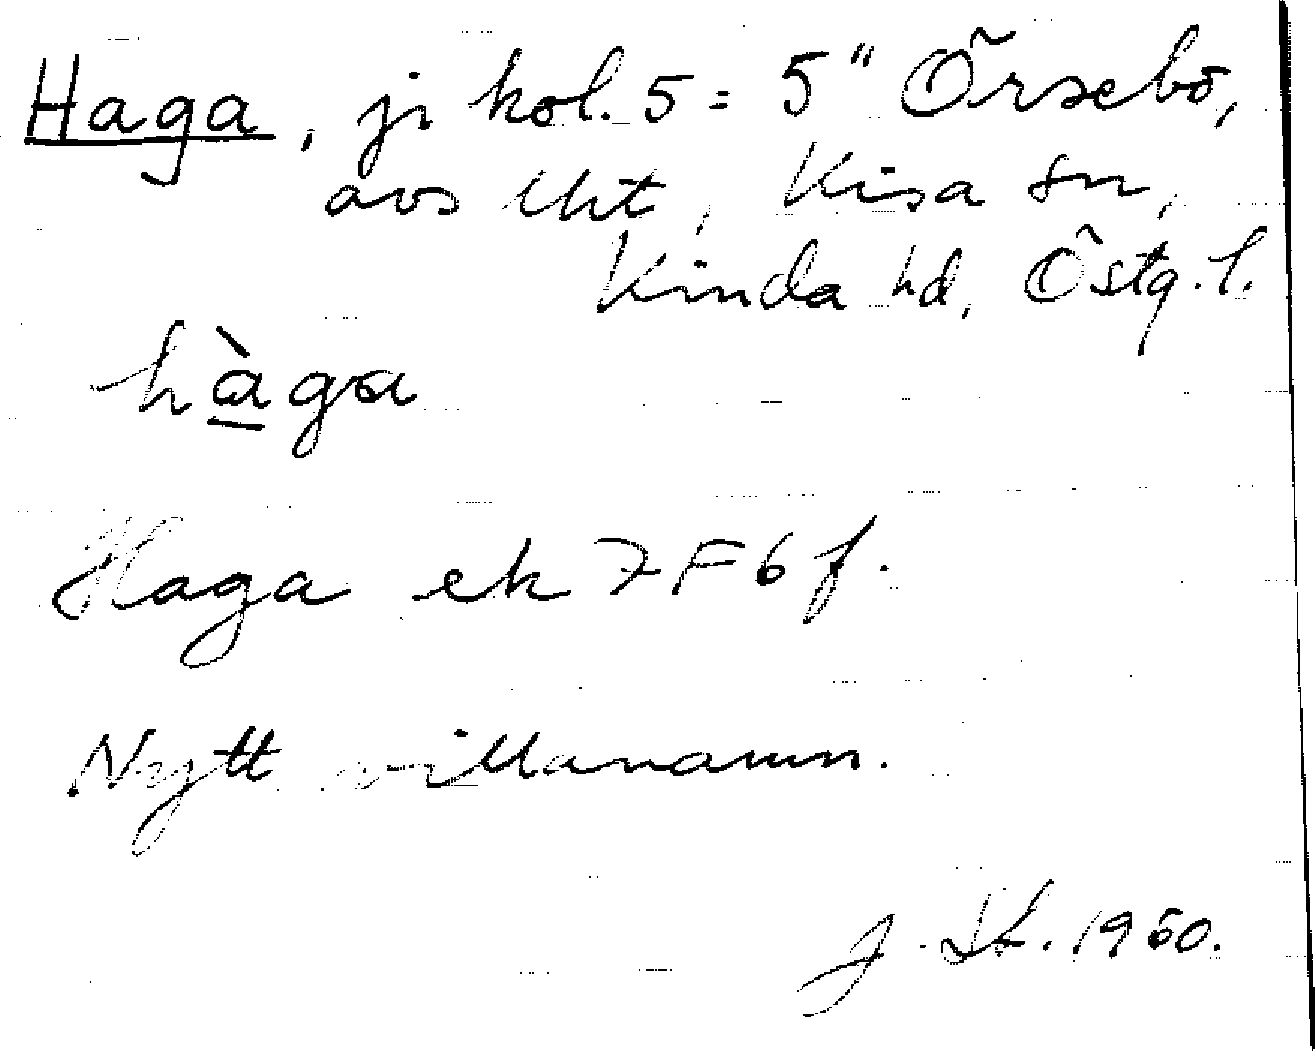 Haga, ji kol. 5 = 5" Örsebo,
avs lht, Kisa sn,
Kinda hd, Östg. l.
hàga
Haga ek 7F6f.
Nytt villanamn.
1960.